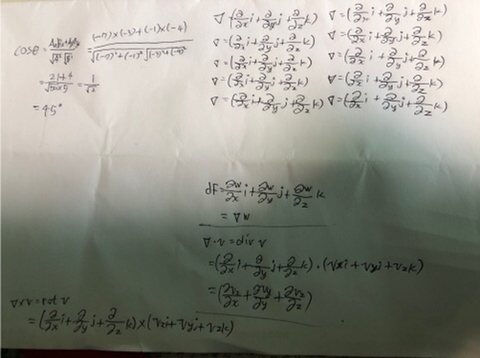 cosθ = (AxBx+AyBy)/(√A² √B²) = ((-7)×(-3)+(-1)×(-4))/(√(-7)²+(-1)² √(-3)²+(-4)²)
= (21+4)/(√50×5) = 1/√2
= 45°
∇ (∂/∂x i + ∂/∂y j + ∂/∂z k)
∇ = (∂/∂x i + ∂/∂y j + ∂/∂z k)
∇ = (∂/∂x i + ∂/∂y j + ∂/∂z k)
∇ = (∂/∂x i + ∂/∂y j + ∂/∂z k)
∇ = (∂/∂x i + ∂/∂y j + ∂/∂z k)
∇ = (∂/∂x i + ∂/∂y j + ∂/∂x k)
∇ = (∂/∂x i + ∂/∂y j + ∂/∂z k)
∇ = (∂/∂x i + ∂/∂y j + ∂/∂z k)
∇ = (∂/∂x i + ∂/∂y j + ∂/∂z k)
∇ = (∂/∂x i + ∂/∂y j + ∂/∂z k)
dF = ∂w/∂x i + ∂w/∂y j + ∂w/∂z k
= ∇w
∇·v = div v
= (∂/∂x i + ∂/∂y j + ∂/∂z k)·(vxi + vyj + vzk)
= (∂vx/∂x + ∂vy/∂y + ∂vz/∂z)
∇×v = rot v
= (∂/∂x i + ∂/∂y j + ∂/∂z k)×(vxi + vyj + vzk)